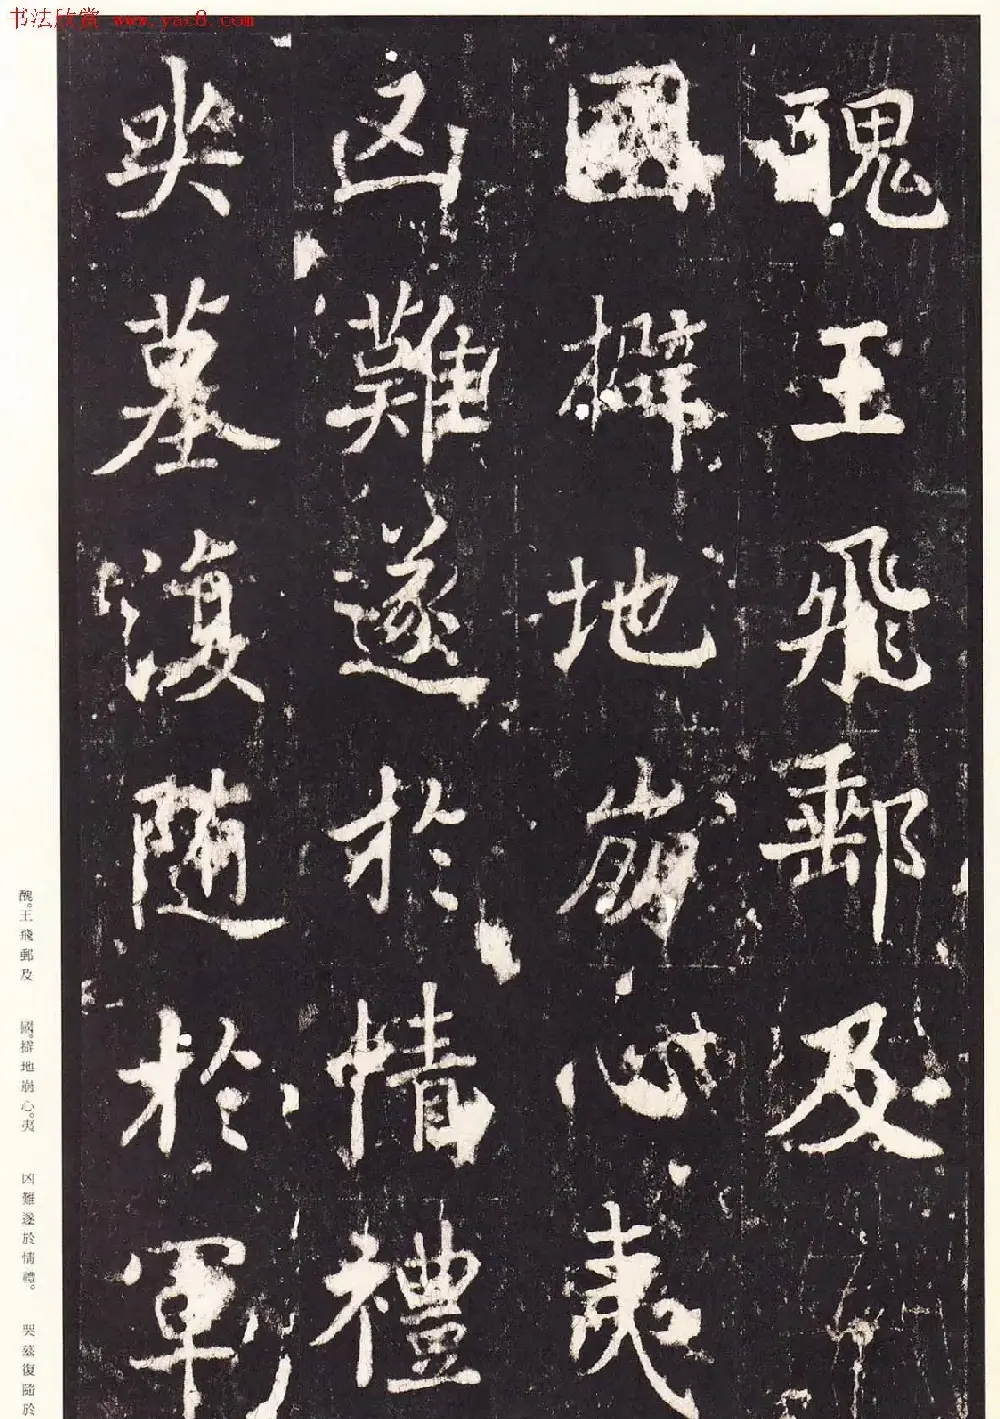 书法欣赏 www.yac8.com
醜王飛郵及
國擗地崩心夷
凶難遂於情禮
哭墓復隨於軍
醜。王飛郵及
國。擗地崩心。夷
凶難遂於情禮。
哭墓復隨於